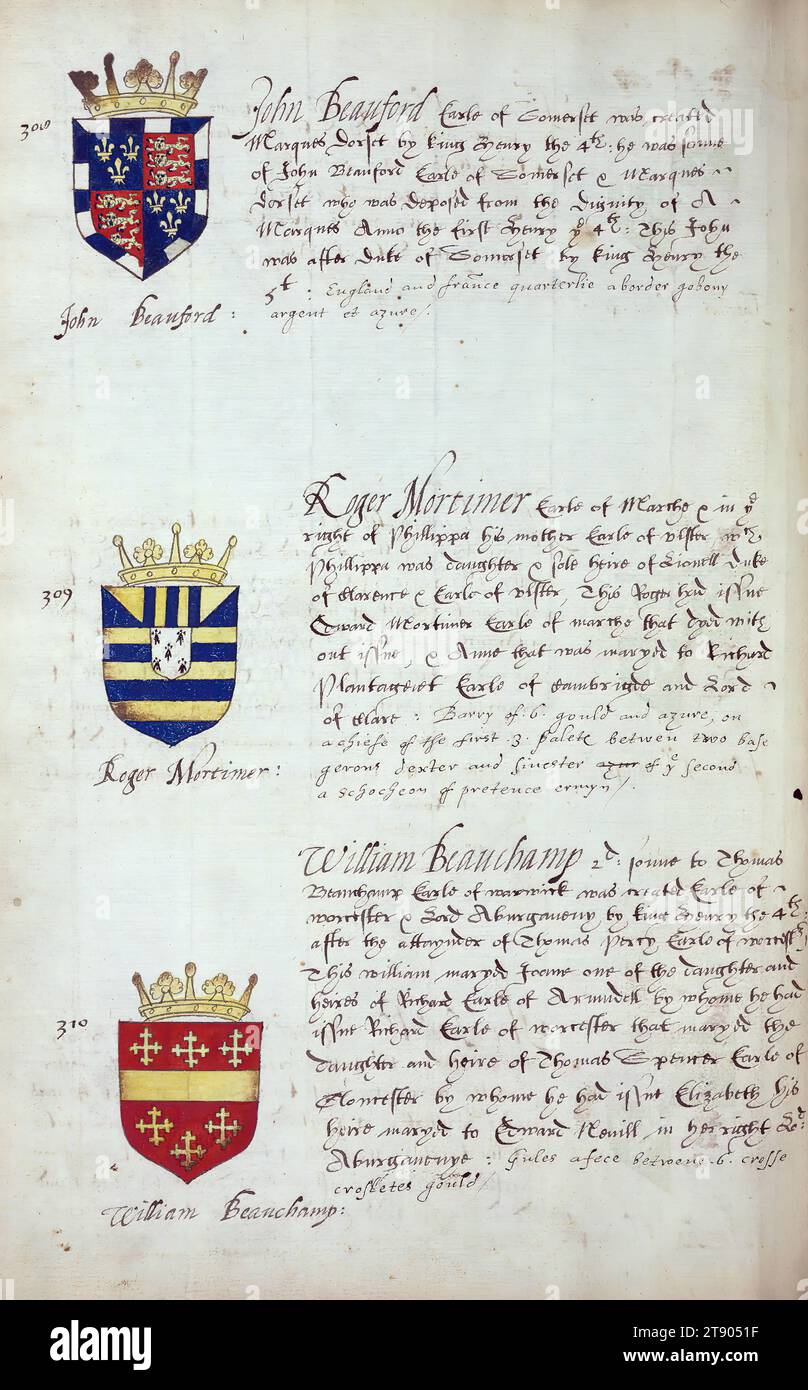 308
John Beauford Earle of Somerset was created
Marques dorset by king Henry the 4th: he was sonne
of John Beauford Earle of Somerset & Marques
dorset who was deposed from the dignity of A
Marques Anno the first Henry ye 4th: This John
was after duke of Somerset by king Henry the
5t : England and france quarterlie a border gobony
argent et azure/.
John Beauford:
309
Roger Mortimer Earle of Marche & in ye
right of Phillippa his mother Earle of vlster, wch
Phillippa was daughter & sole heire of Lionell duke
of Clarence & Earle of vlster, This Roger had issue
Edward Mortimer Earle of marche that dyed with
out issue, & Anne that was maryed to Richard
Plantagenet Earle of Cambrigde and Lord
of Clare : Barry of .6. gould and azure, on
a chiefe of the first .3. palets betwen two base
gerons dexter and sinester of ye second
a schocheon of pretence ermyn/.
Roger Mortimer:
310
William Beauchamp 2d: sonne to Thomas
Beauchamp Earle of warwick was created Earle of
worcester & Lord Aburgaueny by king Henry the 4th:
after the attaynder of Thomas Percy Earle of worcester
This william maryed Joane one of the daughter and
heires of Richard Earle of Arundell by whome he had
issue Richard Earle of worcester that maryed the
daughter and heire of Thomas Spencer Earle of
Gloncester by whome he had issue Elizabeth his
heire maryed to Edward Nevill in her right Ld:
Aburgauenye : Gules a fece betwene .6. crosse
crosletes gould/
William Beauchamp:
alamy
Image ID: 2T9051F
www.alamy.com